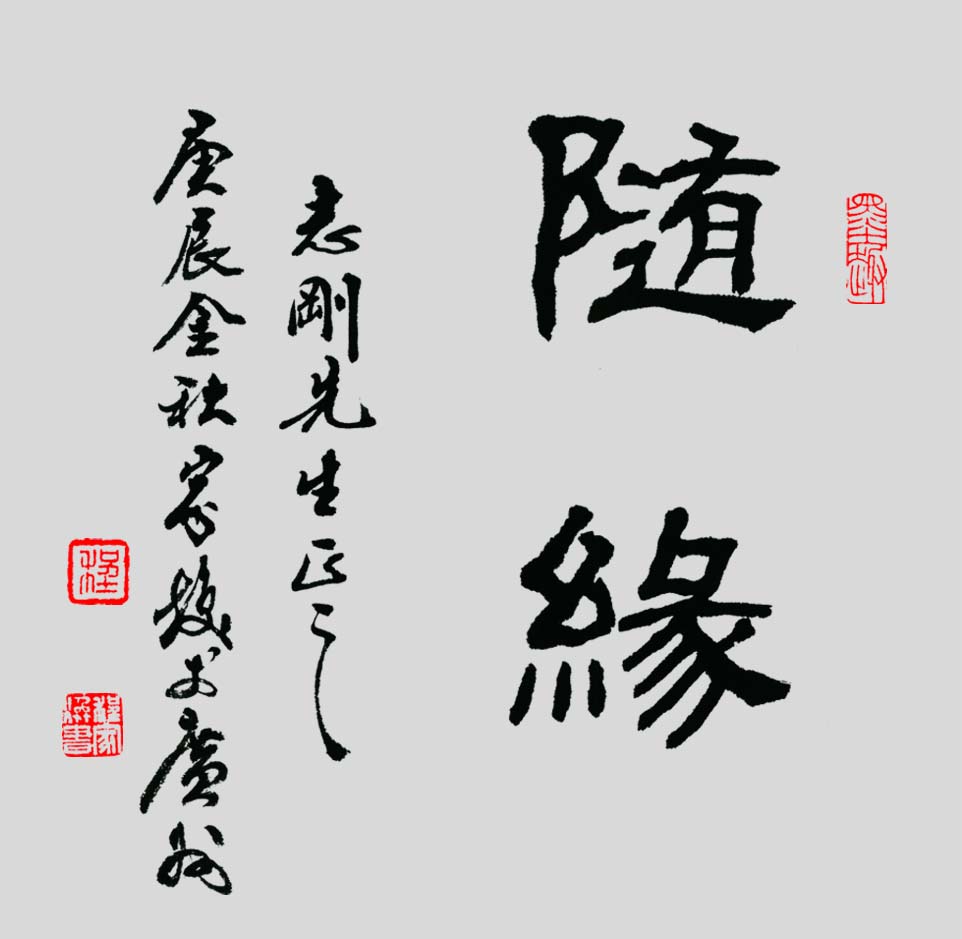 隨緣
志剛先生正之
庚辰金秋家焕于廣州
程
程家焕書